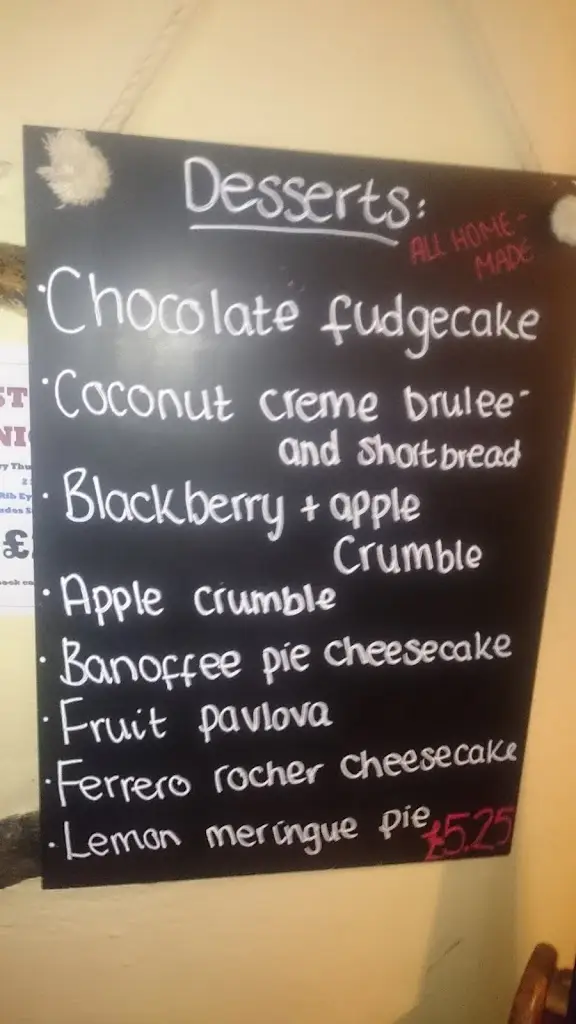 Desserts:
ALL HOME-
MADE
·Chocolate fudgecake
·Coconut creme brulee-
and shortbread
·Blackberry + apple
Crumble
·Apple crumble
·Banoffee pie cheesecake
·Fruit pavlova
·Ferrero rocher cheesecake
·Lemon meringue pie £5.25
ST
NI
£